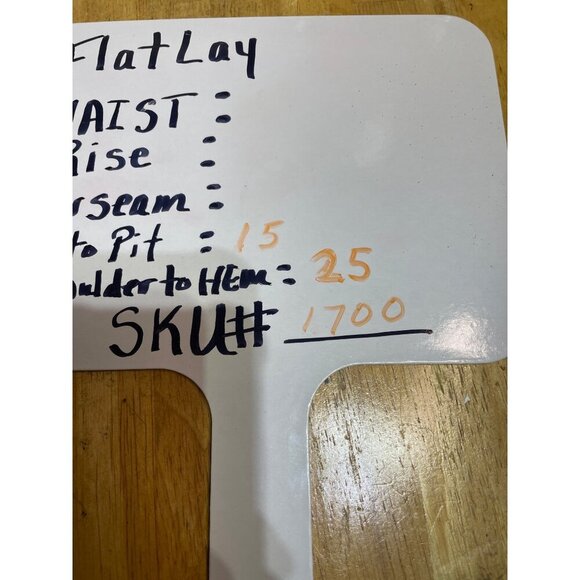 FlatLay
WAIST :
Rise :
rseam :
to Pit : 15
oulder to HEm = 25
SKU# 1700